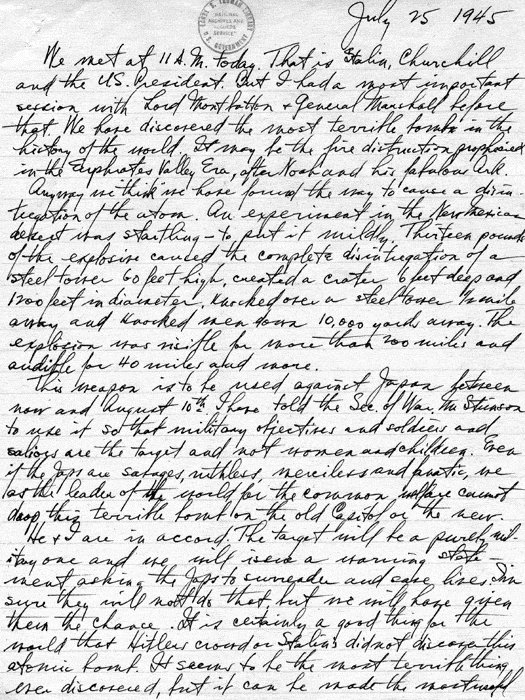 July 25 1945
HARRY S. TRUMAN LIBRARY
NATIONAL
ARCHIVES AND
SERVICE
U.S. GOVERNMENT
We met at 11 A.M. today. That is Stalin, Churchill
and the U.S. President. But I had a most important
session with Lord Mountbatten & General Marshall before
that. We have discovered the most terrible bomb in the
history of the world. It may be the fire distruction prophesied
in the Euphrates Valley Era, after Noah and his fabulous Ark.
Anyway we "think" we have found the way to cause a disin-
tegration of the atom. An experiment in the New Mexican
desert was startling - to put it mildly. Thirteen pounds
of the explosive caused the complete disintegration of a
steel tower 60 feet high, created a crater 6 feet deep and
1200 feet in diameter, knocked over a steel tower 1/2 mile
away and knocked men down 10,000 yards away. The
explosion was visible for more than 200 miles and
audible for 40 miles and more.
This weapon is to be used against Japan between
now and August 10th. I have told the Sec. of War, Mr. Stimson
to use it so that military objectives and soldiers and
sailors are the target and not women and children. Even
if the Japs are savages, ruthless, merciless and fanatic, we
as the leader of the world for the common welfare cannot
drop this terrible bomb on the old Capitol or the new.
He & I are in accord. The target will be a purely mil-
itary one and we will issue a warning state-
ment asking the Japs to surrender and save lives. I'm
sure they will not do that, but we will have given
them the chance. It is certainly a good thing for the
world that Hitler's crowd or Stalin's did not discover this
atomic bomb. It seems to be the most terrible thing
ever discovered, but it can be made the most useful